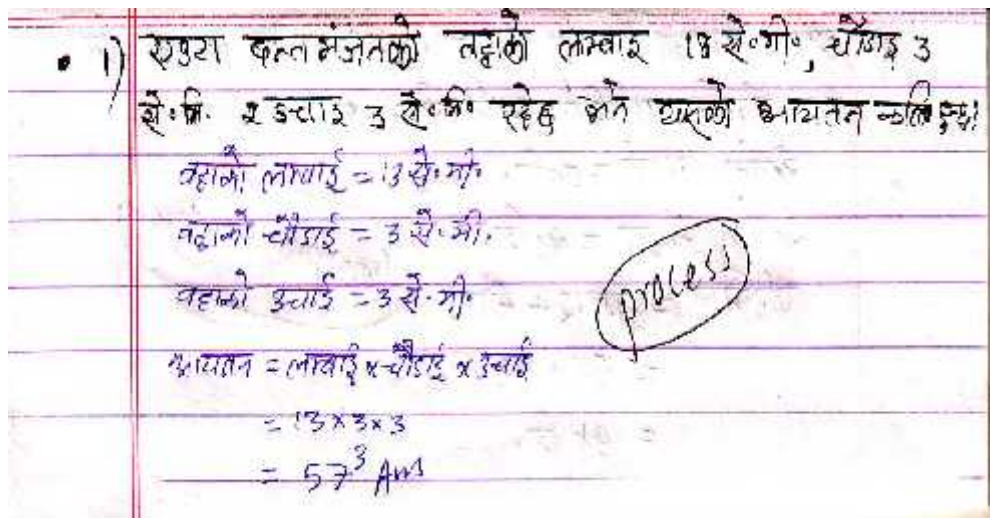 1) एउटा दन्तमंजनको बट्टाको लम्बाइ 13 से॰मी॰, चौडाइ 3
से॰मि. र उचाइ 3 से॰मि॰ रहेछ भने यसको आयतन कति हुन्छ।
बट्टाको लम्बाई = 13 से॰मी॰
बट्टाको चौडाई = 3 से.मी.
बट्टाको उचाई = 3 से.मी.
process
आयतन = लम्बाई x चौडाई x उचाई
= 13 x 3 x 3
= 57³ Ans